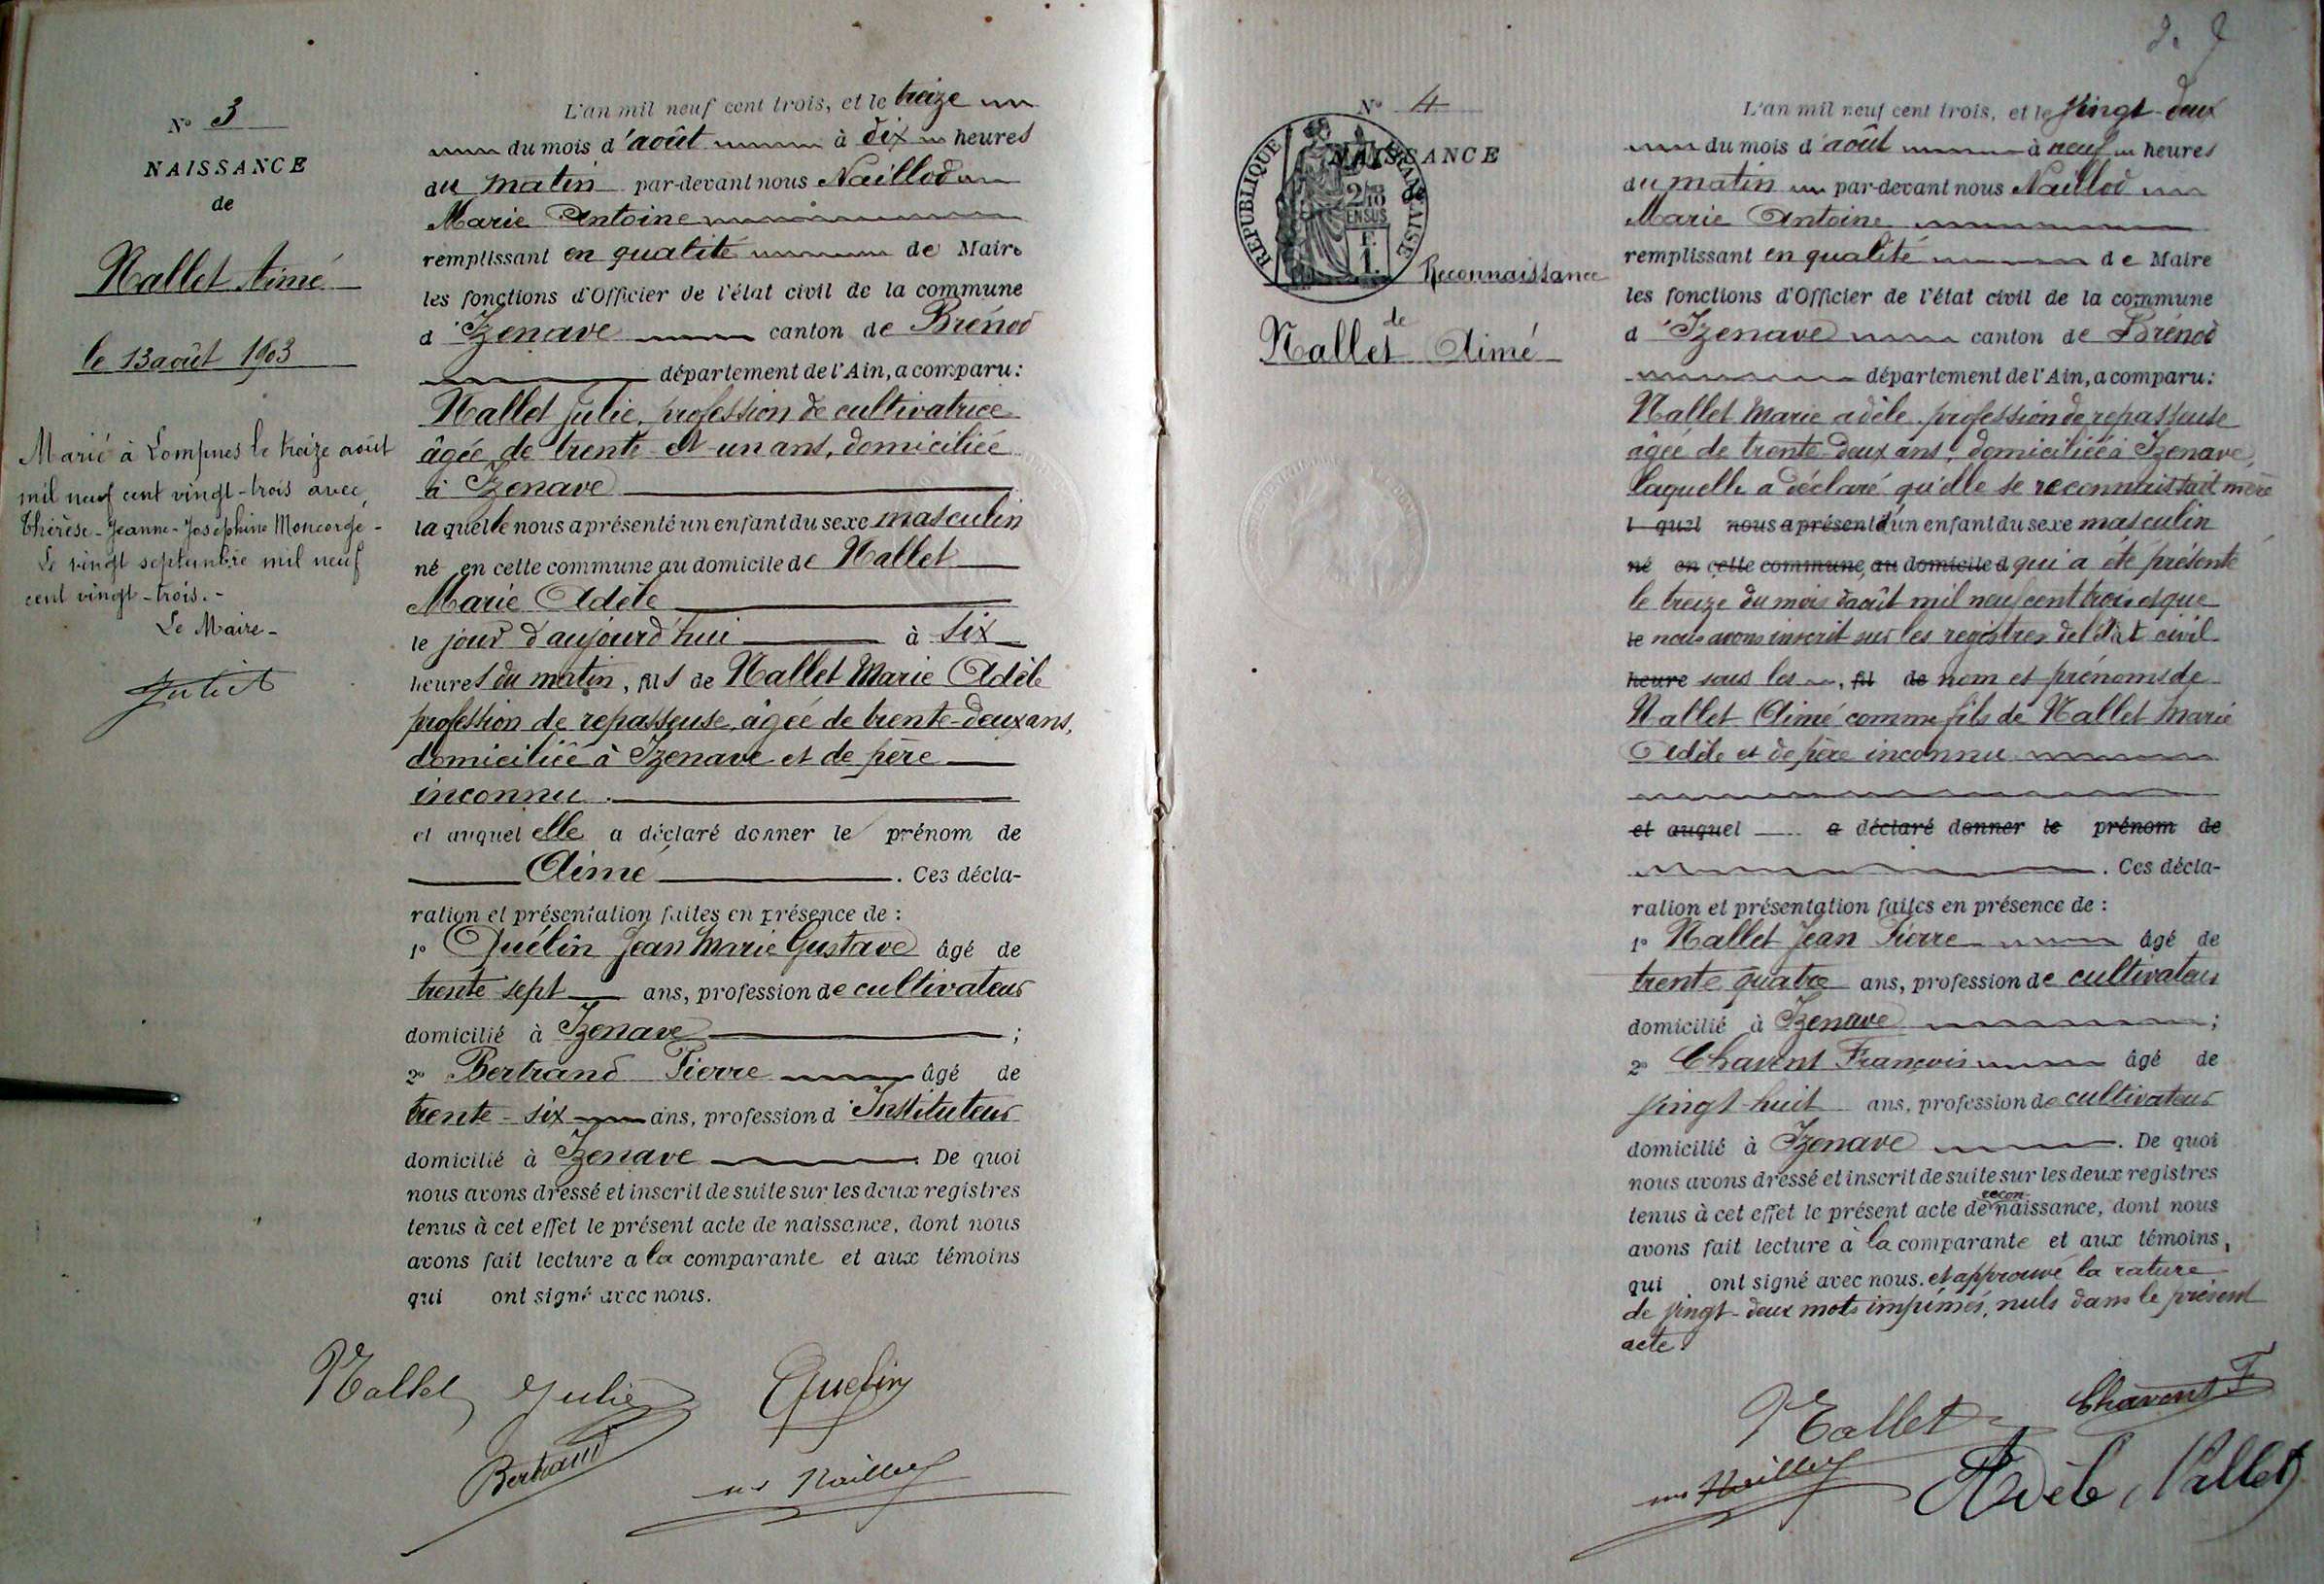 N° 3
NAISSANCE
de
Nallet Aimé
le 13 août 1903
Marié à Lompnes le treize août
mil neuf cent vingt-trois avec
Thérèse-Jeanne-Joséphine Moncorgé-
Le vingt septembre mil neuf
cent vingt-trois.-
Le Maire-
Juliet
L'an mil neuf cent trois, et le treize
du mois d'août à dix heures
du matin par-devant nous Naillod
Marie Antoine
remplissant en qualité de Maire
les fonctions d'Officier de l'état civil de la commune
d'Izenave canton de Brénod
département de l'Ain, a comparu:
Nallet Julie, profession de cultivatrice
âgée de trente et un ans, domiciliée
à Izenave
laquelle nous a présenté un enfant du sexe masculin
né en cette commune au domicile de Nallet
Marie Adèle
le jour d'aujourd'hui à six
heures du matin, fils de Nallet Marie Adèle
profession de repasseuse, âgée de trente-deux ans,
domiciliée à Izenave et de père
inconnu.
et auquel elle a déclaré donner le prénom de
Aimé. Ces décla-
ration et présentation faites en présence de :
1° Quélin Jean Marie Gustave âgé de
trente sept ans, profession de cultivateur
domicilié à Izenave ;
2° Bertrand Pierre âgé de
trente-six ans, profession d'Instituteur
domicilié à Izenave. De quoi
nous avons dressé et inscrit de suite sur les deux registres
tenus à cet effet le présent acte de naissance, dont nous
avons fait lecture a la comparante et aux témoins
qui ont signé avec nous.
Nallet Julie Quelin
Bertrand
Naillod
N° 4
NAISSANCE
de
REPUBLIQUE FRANÇAISE
2/10
EN SUS
F.
1.
Reconnaissance
de
Nallet Aimé
L'an mil neuf cent trois, et le vingt-deux
du mois d'août à neuf heures
du matin par-devant nous Naillod
Marie Antoine
remplissant en qualité de Maire
les fonctions d'Officier de l'état civil de la commune
d'Izenave canton de Brénod
département de l'Ain, a comparu:
Nallet Marie adèle profession de repasseuse
âgée de trente-deux ans, domiciliée à Izenave,
laquelle a déclaré qu'elle se reconnaissait mère
l quel nous a présenté d'un enfant du sexe masculin
né en cette commune, au domicile d qui a été présenté
le treize du mois d'août mil neuf cent trois et que
le nous avons inscrit sur les registres de l'état civil
heure sous les , fil de nom et prénoms de
Nallet Aimé comme fils de Nallet Marie
Adèle et de père inconnu
et auquel a déclaré donner le prénom de
. Ces décla-
ration et présentation faites en présence de :
1° Nallet Jean Pierre âgé de
trente quatre ans, profession de cultivateur
domicilié à Izenave ;
2° Chavent François âgé de
vingt-huit ans, profession de cultivateur
domicilié à Izenave. De quoi
nous avons dressé et inscrit de suite sur les deux registres
recon-
tenus à cet effet le présent acte de naissance, dont nous
avons fait lecture à la comparante et aux témoins,
qui ont signé avec nous. et approuvé la rature
de vingt-deux mots imprimés, nuls dans le présent
acte.
Nallet Chavent F
Naillod Adèle Nallet